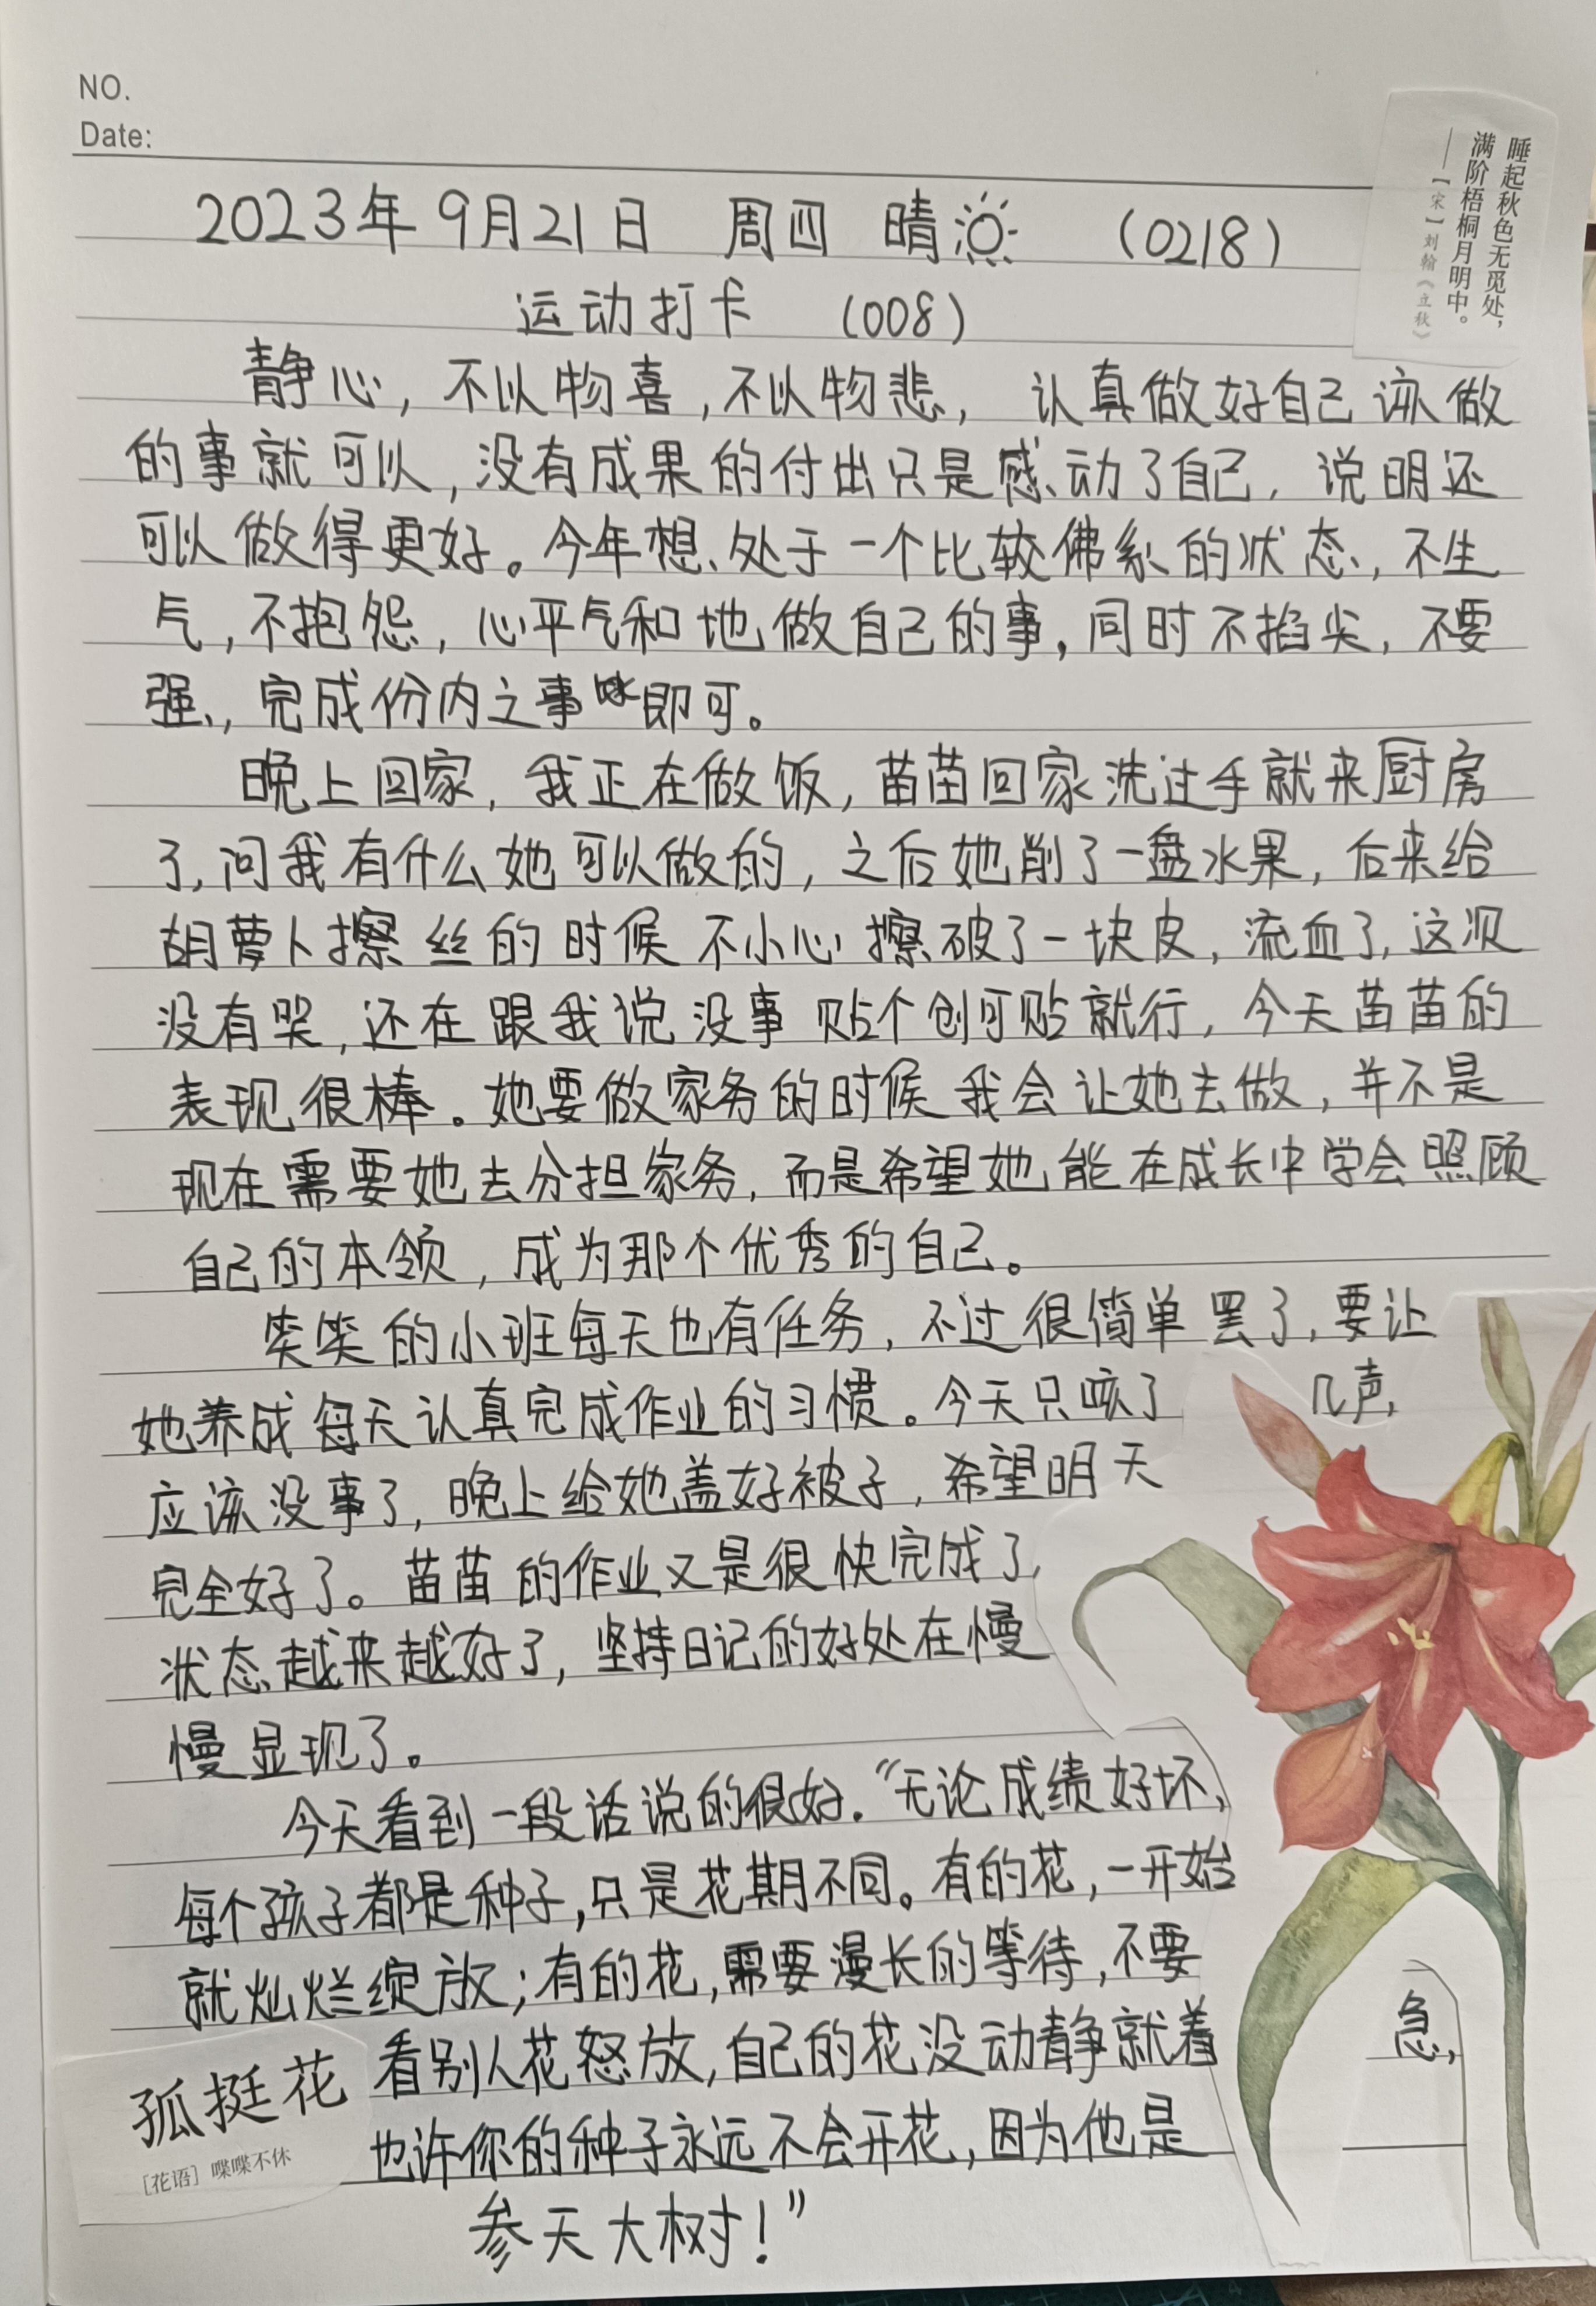 NO.
Date:
睡起秋色无觅处，
满阶梧桐月明中。
——【宋】刘翰《立秋》
2023年9月21日 周四 晴 (0218)
运动打卡 (008)
静心，不以物喜，不以物悲，认真做好自己该做
的事就可以，没有成果的付出只是感动了自己，说明还
可以做得更好。今年想处于一个比较佛系的状态，不生
气，不抱怨，心平气和地做自己的事，同时不掐尖，不要
强，完成份内之事即可。
晚上回家，我正在做饭，苗苗回家洗过手就来厨房
了，问我有什么她可以做的，之后她削了一盘水果，后来给
胡萝卜擦丝的时候不小心擦破了一块皮，流血了，这次
没有哭，还在跟我说没事贴个创可贴就行，今天苗苗的
表现很棒。她要做家务的时候我会让她去做，并不是
现在需要她去分担家务，而是希望她能在成长中学会照顾
自己的本领，成为那个优秀的自己。
笑笑的小班每天也有任务，不过很简单罢了，要让
她养成每天认真完成作业的习惯。今天只咳了几声，
应该没事了，晚上给她盖好被子，希望明天
完全好了。苗苗的作业又是很快完成了，
状态越来越好了，坚持日记的好处在慢
慢显现了。
今天看到一段话说的很好．“无论成绩好坏，
每个孩子都是种子，只是花期不同。有的花，一开始
就灿烂绽放；有的花，需要漫长的等待，不要
看别人花怒放，自己的花没动静就着急，
也许你的种子永远不会开花，因为他是
参天大树！”
孤挺花
[花语] 喋喋不休